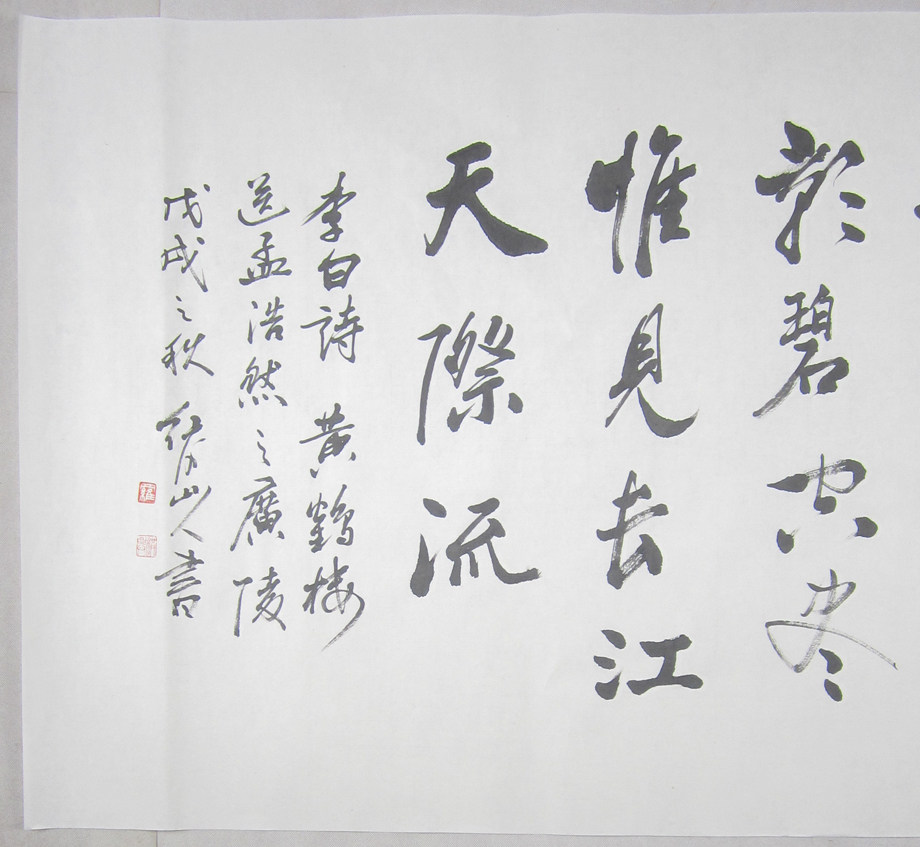 影碧空尽
惟見長江
天際流
李白詩 黄鶴楼
送孟浩然之廣陵
戊戌之秋 山人書